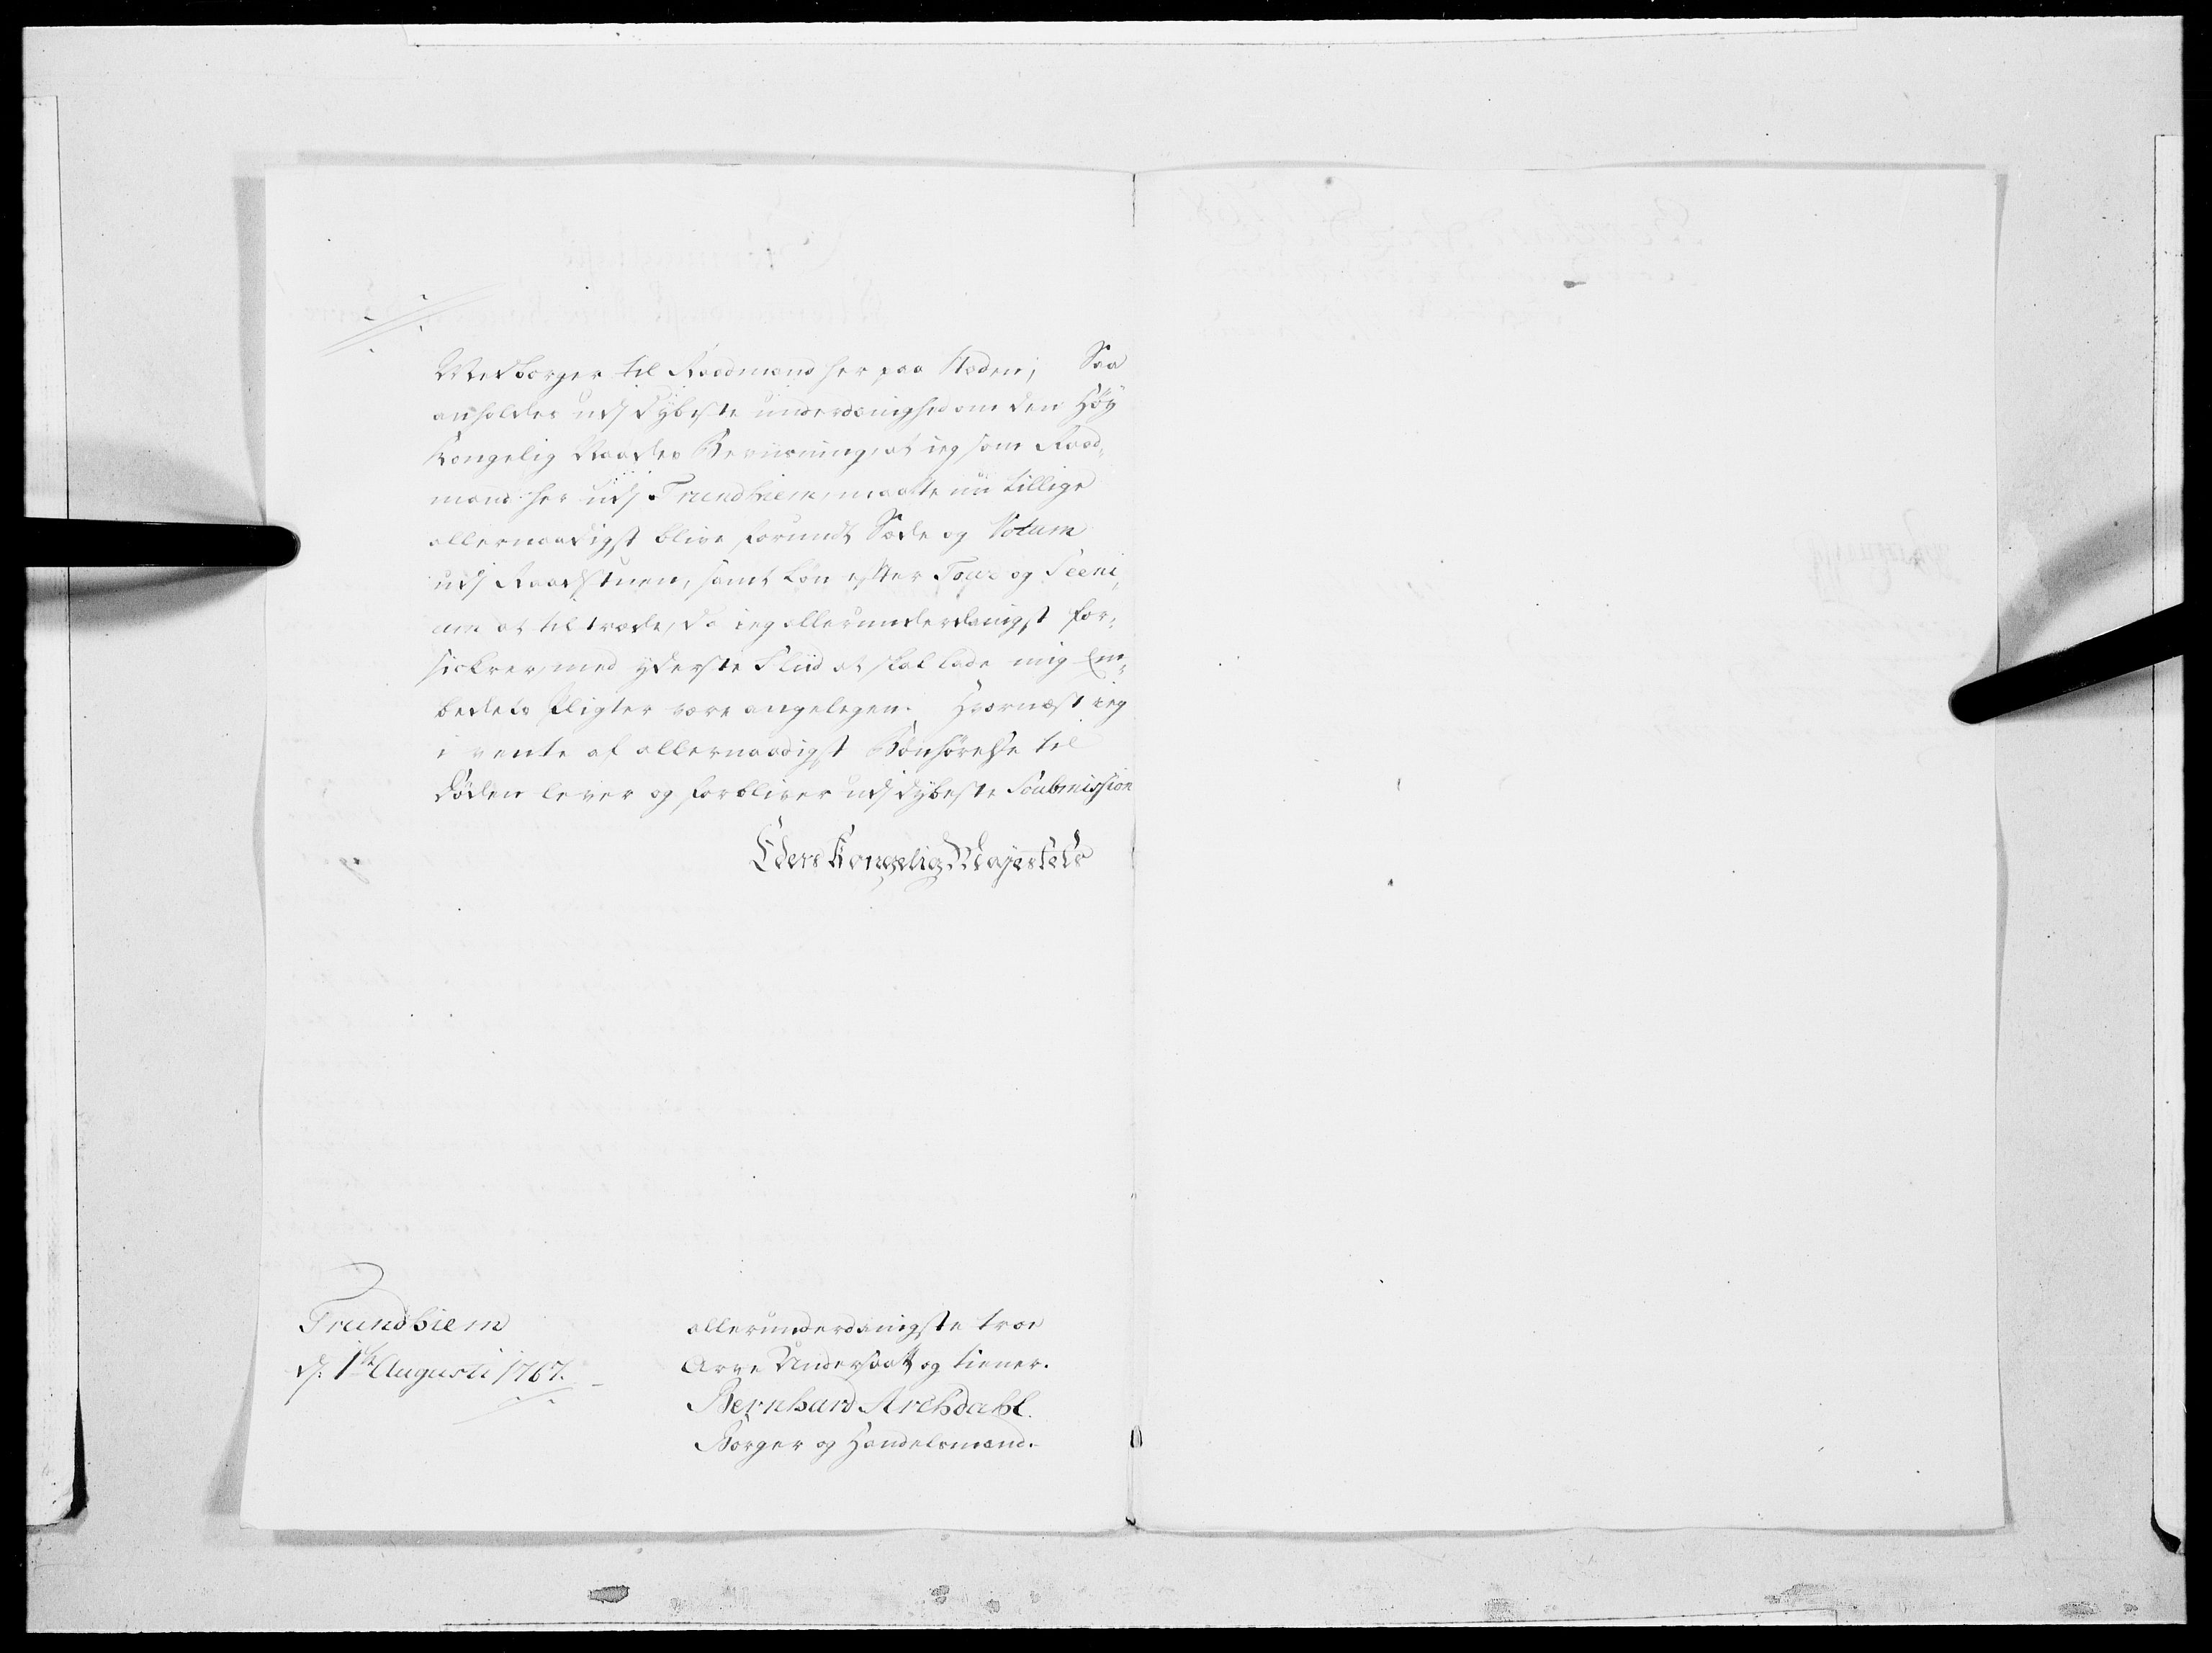 Medborger til Raadmand her paa Stæden, Saa
anholder udj dybeste underdanighed om den Høy
Kongelig Naades Beviisning, at ieg som Raad-
mand her udj Trundhiem, maatte nu tillige
allernaadigst blive forundt Sæde og Votum
udj Raadstuen, samt Løn efter Tour og Seeni-
um at tiltræde, da ieg allerunderdanigst for-
sickrer, med yderste Fliid at skal lade mig Em-
bedets Pligter være angelegen. Hvornæst ieg
i vente af allernaadigst Bønhørelse til
Døden lever og forbliver udj dybeste Soubmission
Eders Kongelig Mayestets
Trundhiem
d: 1ste Augusti 1767.
allerunderdanigste troe
Arve Undersaatt og tiener.
Bernhard Archdahl.
Borger og Handelsmand.